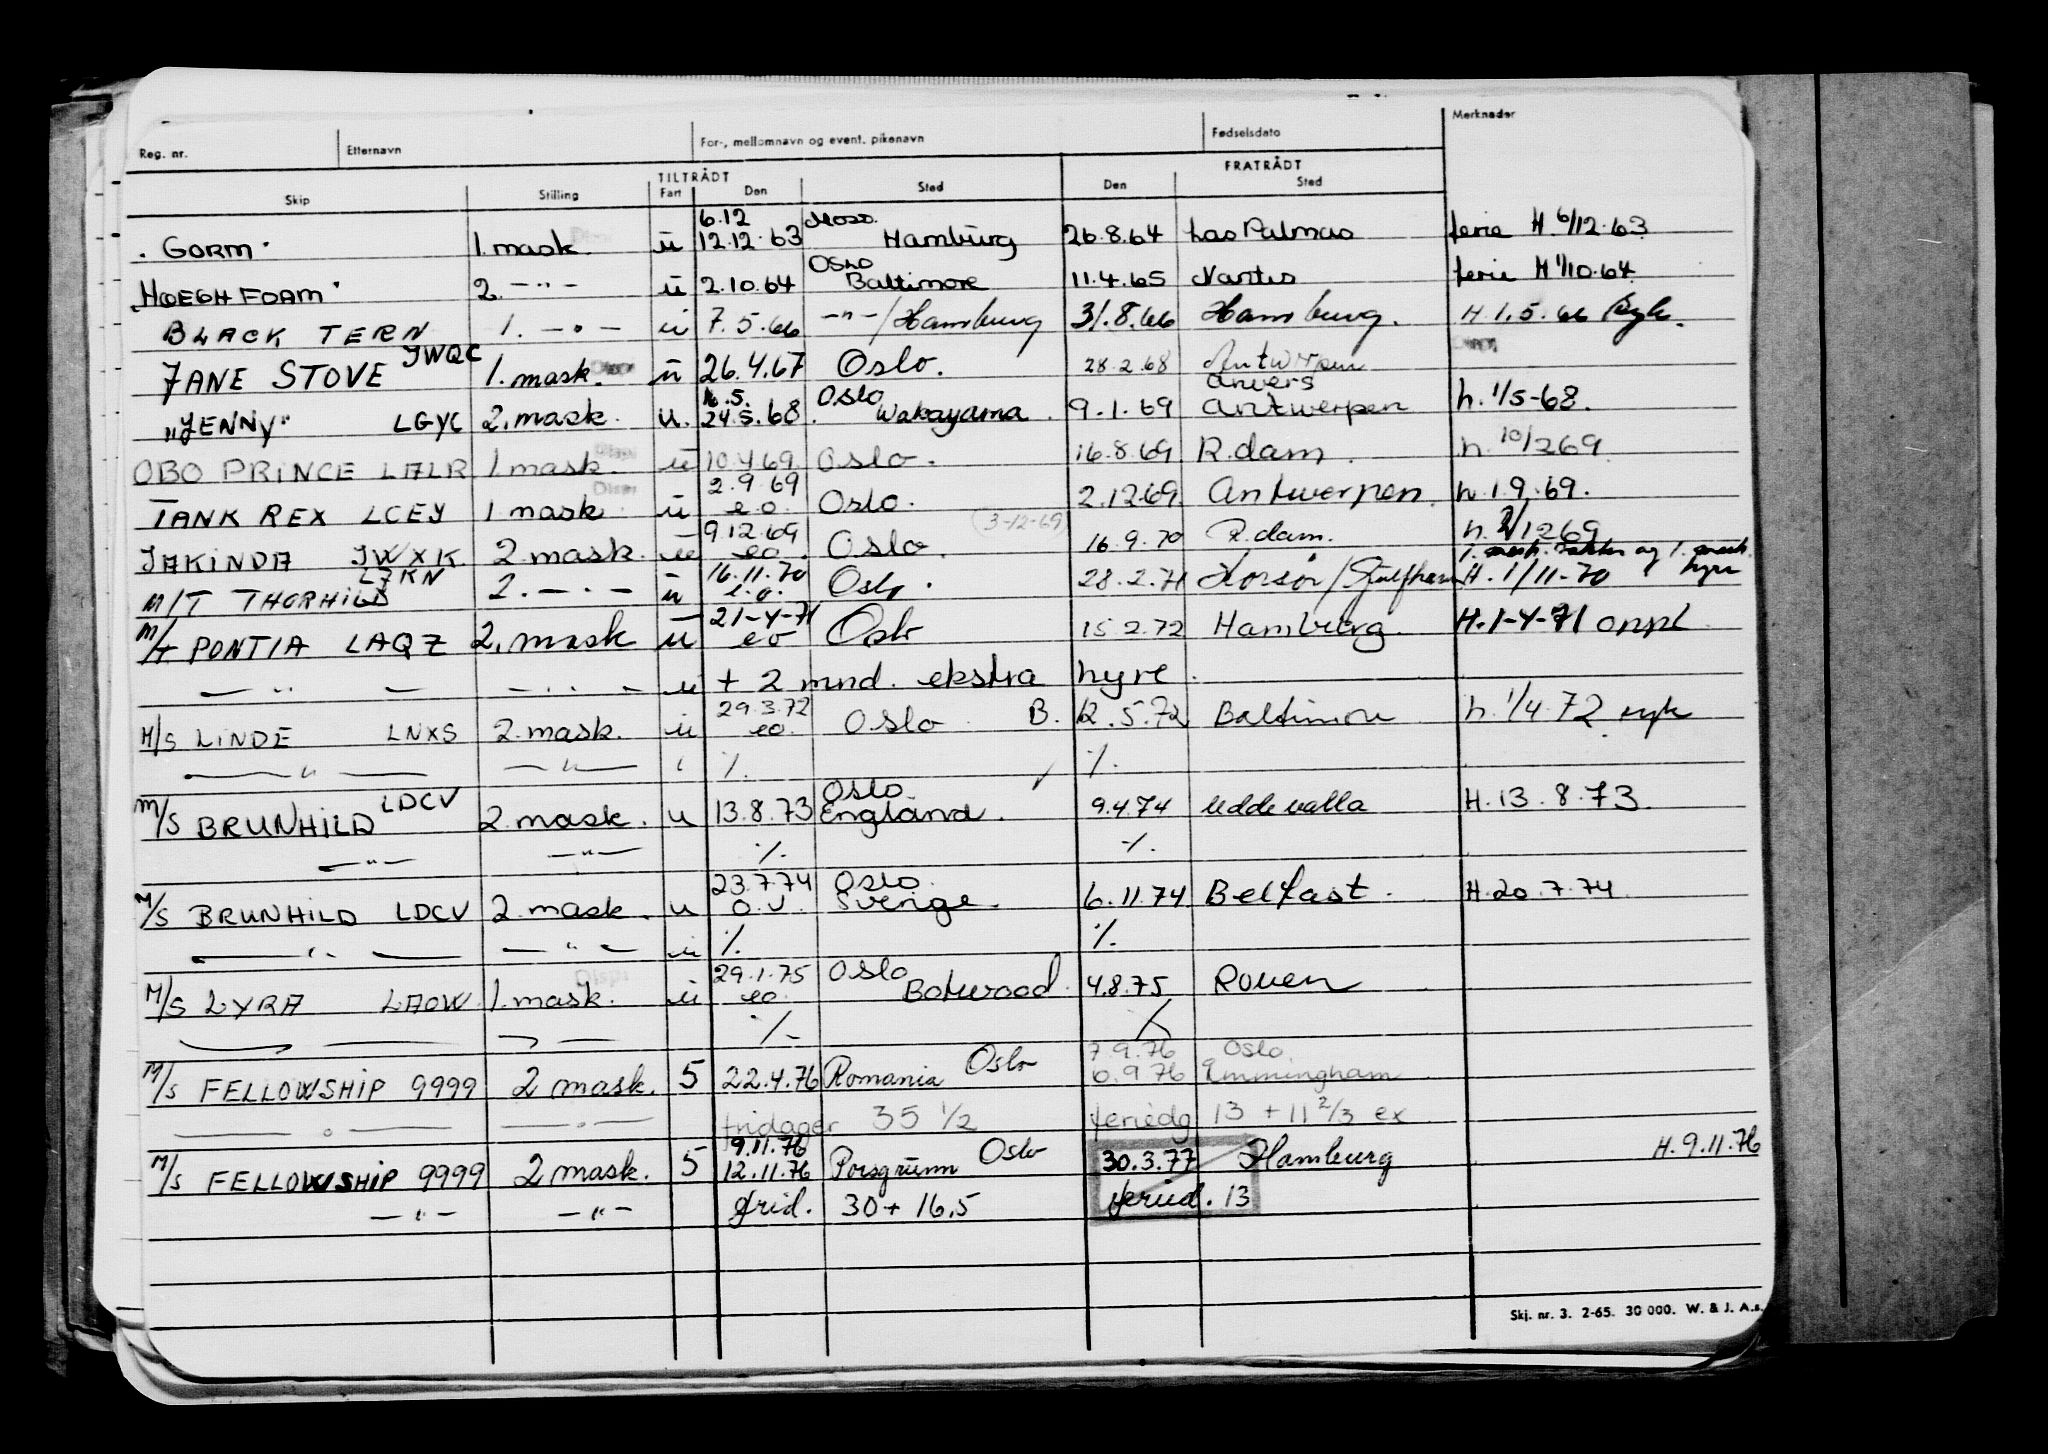 Reg. nr. Etternavn For-, mellomnavn og event. pikenavn Fødselsdato Merknader
TILTRÅDT FRATRÅDT
Skip Stilling Fart Den Sted Den Sted
6.12 Moss
"GORM" 1. mask. Disp. u 12.12.63 Hamburg 26.8.64 Las Palmas ferie H 6/12.63
Oslo
HØEGH FOAM" 2. -"- u 2.10.64 Baltimore 11.4.65 Nantes ferie H 1/10.64
BLACK TERN 1. -"- u 7.5.66 -"-/Hamburg 31.8.66 Hamburg. H 1.5.66 Syk.
JANE STOVE JWQC 1. mask. Disp. u 26.4.67 Oslo. 28.2.68 Antwerpen
16.5. Oslo Anvers
"JENNY" LGYC 2. mask. u. 24.5.68. Wakayama. 9.1.69 Antwerpen h. 1/5-68.
OBO PRINCE LALR 1. mask. Disp. u 10.4.69. Oslo. 16.8.69 R.dam. h. 10/2 69.
2.9.69
TANK REX LCEY 1 mask Disp. u e.o. Oslo. 2.12.69. Antwerpen. h. 1.9.69.
9.12.69 (3-12-69)
JAKINDA JWXK 2 mask. u eo. Oslo. 16.9.70 R.dam. h. 2/12 69
16.11.70 1. mask. og 1. mask. hyre
M/T THORHILD LJKN 2. -"- u e.o. Oslo. 28.2.71 Korsør/ H. 1/11-70
21-4-71
M/T PONTIA LAQZ 2. mask u eo Oslo 15.2.72 Hamburg. H. 1-4-71 oppl.
-"- -"- u + 2 mnd. ekstra hyre.
29.3.72
M/S LINDE LNXS 2. mask. u eo. Oslo B. 12.5.72 Baltimore h. 1/4 72 syk
-"- -"- %. %.
Oslo
M/S BRUNHILD LDCV 2. mask. u 13.8.73 England. 9.4.74 Uddevalla H. 13.8.73.
-"- -"- %. %.
23.7.74 Oslo.
M/S BRUNHILD LDCV 2. mask. u o.v. Sverige. 6.11.74 Belfast. H. 20.7.74.
-"- -"- u %. %.
29.1.75 Oslo
M/S LYRA LAOW. 1. mask. Disp. u eo. Botwood. 4.8.75 Rouen
%
7.9.76 Oslo.
M/S FELLOWSHIP 9999 2 mask. 5 22.4.76 Romania Oslo 6.9.76 Immingham
-"- -"- fridager 35 1/2 feriedg 13 + 11 2/3 ex
9.11.76
M/S FELLOWSHIP 9999 2 mask. 5 12.11.76 Porsgrunn Oslo 30.3.77 Hamburg H. 9.11.76
-"- -"- frid. 30 + 16,5 feried. 13
Skj. nr. 3. 2-65. 30 000. W. & J. A.s.